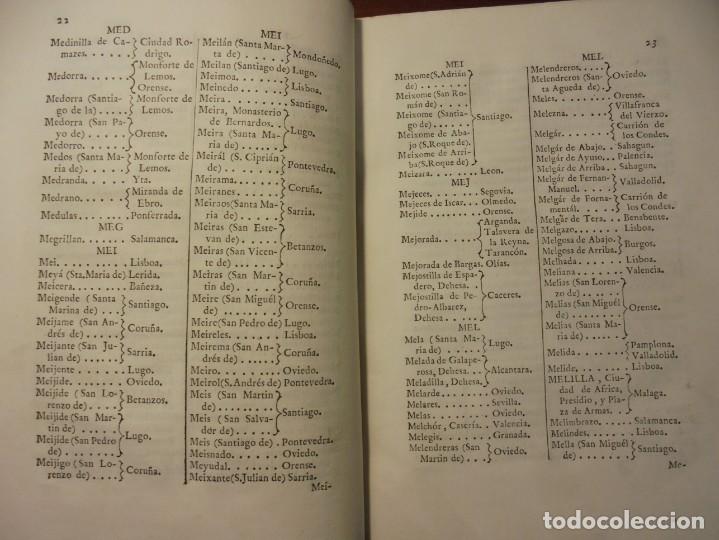 22
MED
Medinilla de Ca-
mazes. . . . . . . } Ciudad Rodrigo.
Medorra. . . . . . { Monforte de
Lemos.
Orense.
Medorra (Santia-
go de la) . . . . . } Monforte de
Lemos.
Medorra (San Pa-
yo de) . . . . . . } Orense.
Medorro. . . . . .
Medos (Santa Ma-
ria de). . . . . . } Monforte de
Lemos.
Medranda. . . . . Yta.
Medrano. . . . . . { Miranda de
Ebro.
Medulas. . . . . . Ponferrada.
MEG
Megrillan. . . . . Salamanca.
MEI
Mei. . . . . . . . Lisboa.
Meyá (Sta. Maria de) Lerida.
Meicera. . . . . . Bañeza.
Meigende (Santa
Marina de) . . . . } Santiago.
Meijame (San An-
drés de) . . . . . } Coruña.
Meijante (San Ju-
lian de) . . . . . } Sarria.
Meijente. . . . . . Lugo.
Meijide. . . . . . Oviedo.
Meijide (San Lo-
renzo de) . . . . } Betanzos.
Meijide (San Mar-
tin de). . . . . .
Meijide (San Pedro
de) . . . . . . . } Lugo.
Meijigo (San Lo-
renzo de). . . . . } Coruña.
MEI
Meilán (Santa Mar-
ta de) . . . . . . } Mondoñedo.
Meilan (Santiago de) Lugo.
Meimoa. . . . . .
Meinedo. . . . . . } Lisboa.
Meira. . . . . . . Santiago.
Meira, Monasterio
de Bernardos. . .
Meira (Santa Ma-
ria de). . . . . . } Lugo.
Meirál (S. Ciprián
de) . . . . . . . } Pontevedra.
Meirama. . . . . .
Meiranes. . . . . . } Coruña.
Meiraos (Santa Ma-
ria de). . . . . . } Sarria.
Meiras (San Este-
van de) . . . . .
Meiras (San Vicen-
te de) . . . . . . } Betanzos.
Meiras (San Mar-
tin de) . . . . . } Coruña.
Meire (San Miguél
de) . . . . . . . } Orense.
Meire (San Pedro de) Lugo.
Meireles. . . . . . Lisboa.
Meirema (San An-
drés de) . . . . . } Coruña.
Meiro. . . . . . . Oviedo.
Meirol (S. Andrés de) Pontevedra.
Meis (San Martin
de) . . . . . . .
Meis (San Salva-
dor de) . . . . . } Santiago.
Meis (Santiago de) . Pontevedra.
Meisnado. . . . . . Oviedo.
Meyudal. . . . . . Orense.
Meixante (S. Julian de) Sarria.
Mei-
23
MEI
Meixome (S. Adrián
de) . . . . . . .
Meixome (San Ro-
mán de) . . . . .
Meixome (Santia-
go de) . . . . . .
Meixome de Aba-
jo (S. Roque de).
Meixome de Arri-
ba (S. Roque de). } Santiago.
Meizara. . . . . . Leon.
MEJ
Mejeces. . . . . . Segovia.
Mejeces de Iscar. . Olmedo.
Mejide. . . . . . . Orense.
Mejorada. . . . . . { Arganda.
Talavera de
la Reyna.
Tarancón.
Mejorada de Bargas. Olias.
Mejostilla de Espa-
dero, Dehesa. . .
Mejostilla de Pe-
dro-Albarez,
Dehesa. . . . . . } Caceres.
MEL
Mela (Santa Ma-
ria de). . . . . . } Lugo.
Melada de Galape-
rosa, Dehesa. . .
Meladilla, Dehesa. } Alcantara.
Melarde. . . . . . Oviedo.
Melares. . . . . . Sevilla.
Melas. . . . . . . Oviedo.
Melchór, Casería. . Valencia.
Melegis. . . . . . Granada.
Melendreras (San
Martin de). . . . } Oviedo.
MEL
Melendreros. . . .
Melendreros (San-
ta Agueda de). . } Oviedo.
Meles. . . . . . . Orense.
Melezna. . . . . . { Villafranca
del Vierzo.
Melgár. . . . . . . { Carrión de
los Condes.
Melgár de Abajo. . Sahagun.
Melgár de Ayuso. . Palencia.
Melgár de Arriba. . Sahagun.
Melgár de Fernan-
Manuel. . . . . . } Valladolid.
Melgár de Forna-
mentál. . . . . . } Carrión de
los Condes.
Melgár de Tera. . . Benabente.
Melgazo. . . . . . Lisboa.
Melgosa de Abajo.
Melgosa de Arriba. } Burgos.
Melhada. . . . . . Lisboa.
Meliana. . . . . . Valencia.
Melias (San Loren-
zo de) . . . . . .
Melias (San Miguél
de) . . . . . . .
Melias (Santa Ma-
ria de) . . . . . } Orense.
Melida. . . . . . . { Pamplona.
Valladolid.
Melide. . . . . . . Lisboa.
MELILLA, Ciu-
dad de Africa,
Presidio, y Pla-
za de Armas. . . } Malaga.
Melimbrazo. . . . Salamanca.
Melindes. . . . . . Lisboa.
Mella (San Miguél
de) . . . . . . . } Santiago.
Me-
todocoleccion.net